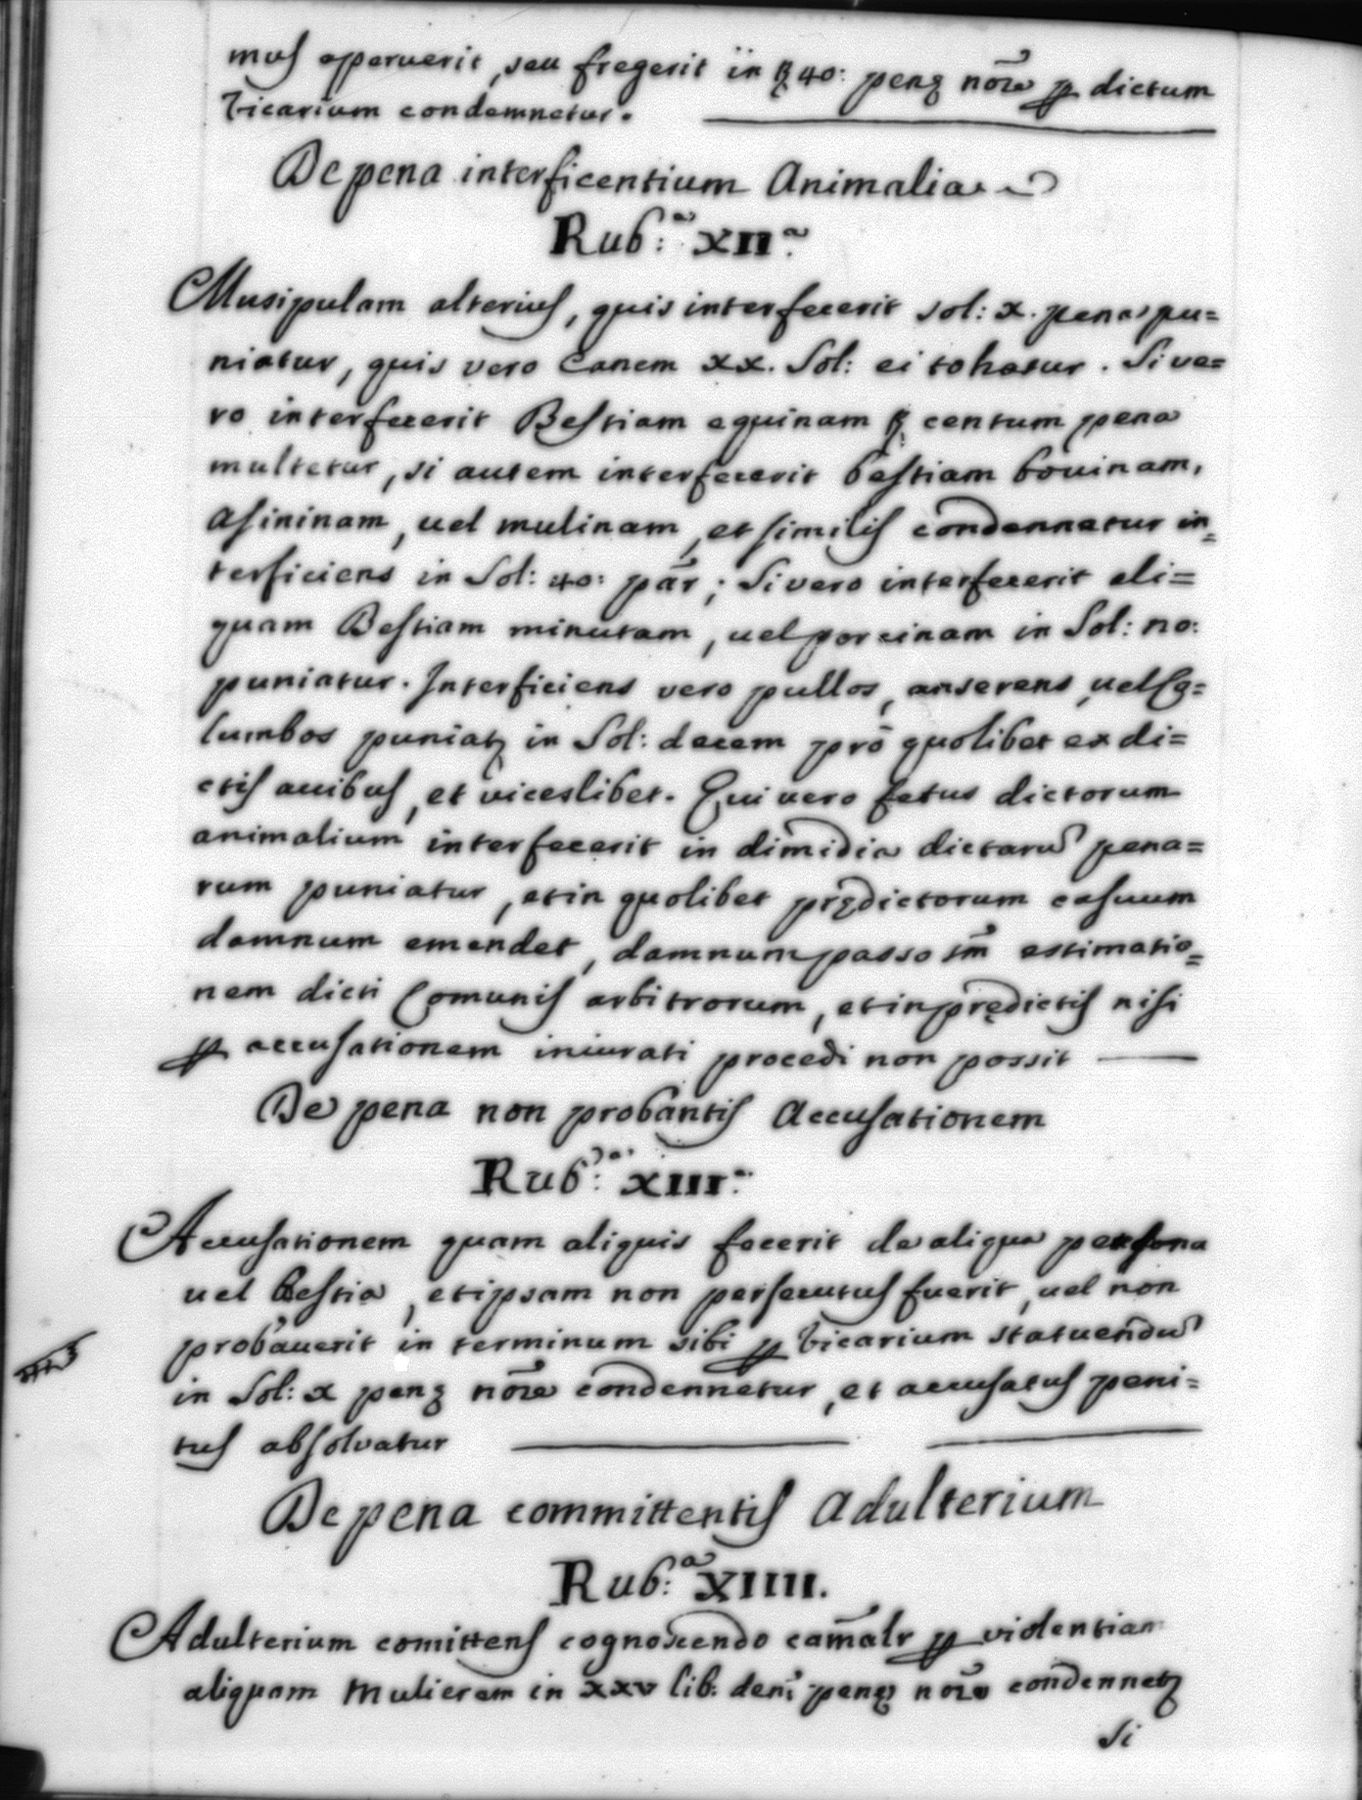 mus aperuerit, seu fregerit in ꝶ 40: penę nōie ꝑ dictum
Vicarium condemnetur.
De pena interficentium Animalia
Rub:ª XIIª
Musipulam alterius, quis interfecerit sol: x. pena pu=
niatur, quis vero Canem xx. Sol: ei tollatur. Si ve=
ro interfecerit Bestiam equinam ꝶ centum pena
multetur, si autem interfecerit bestiam bouinam,
asininam, uel mulinam, et similis condennetur in=
terficiens in Sol: 40: pār; Si vero interfecerit ali=
quam Bestiam minutam, uel porcinam in Sol: no:
puniatur. Interficiens vero pullos, anserens, uel Co=
lumbos puniatꝫ in Sol: decem prō quolibet ex di=
ctis auibus, et viceslibet. Qui uero fetus dictorum
animalium interfecerit in dimidia dictarū pena=
rum puniatur, et in quolibet prędictorum casuum
damnum emendet, damnum passo sm̄ estimatio=
nem dicti Comunis arbitrorum, et in prędictis nisi
ꝑ accusationem iniurati procedi non possit
De pena non probantis Accusationem
Rub:ª XIIIª
Accusationem quam aliquis fecerit de aliqua persona
uel Bestia, et ipsam non persecutus fuerit, uel non
probauerit in terminum sibi ꝑ Vicarium statuendū
in Sol: x penę nōie condennetur, et accusatus peni=
tus absolvatur
De pena committentis Adulterium
Rub:ª XIIII.
Adulterium comittens cognoscendo carnalr ꝑ violentiam
aliquam Mulierem in xxv lib: den: penę nōie condennetꝫ
Si